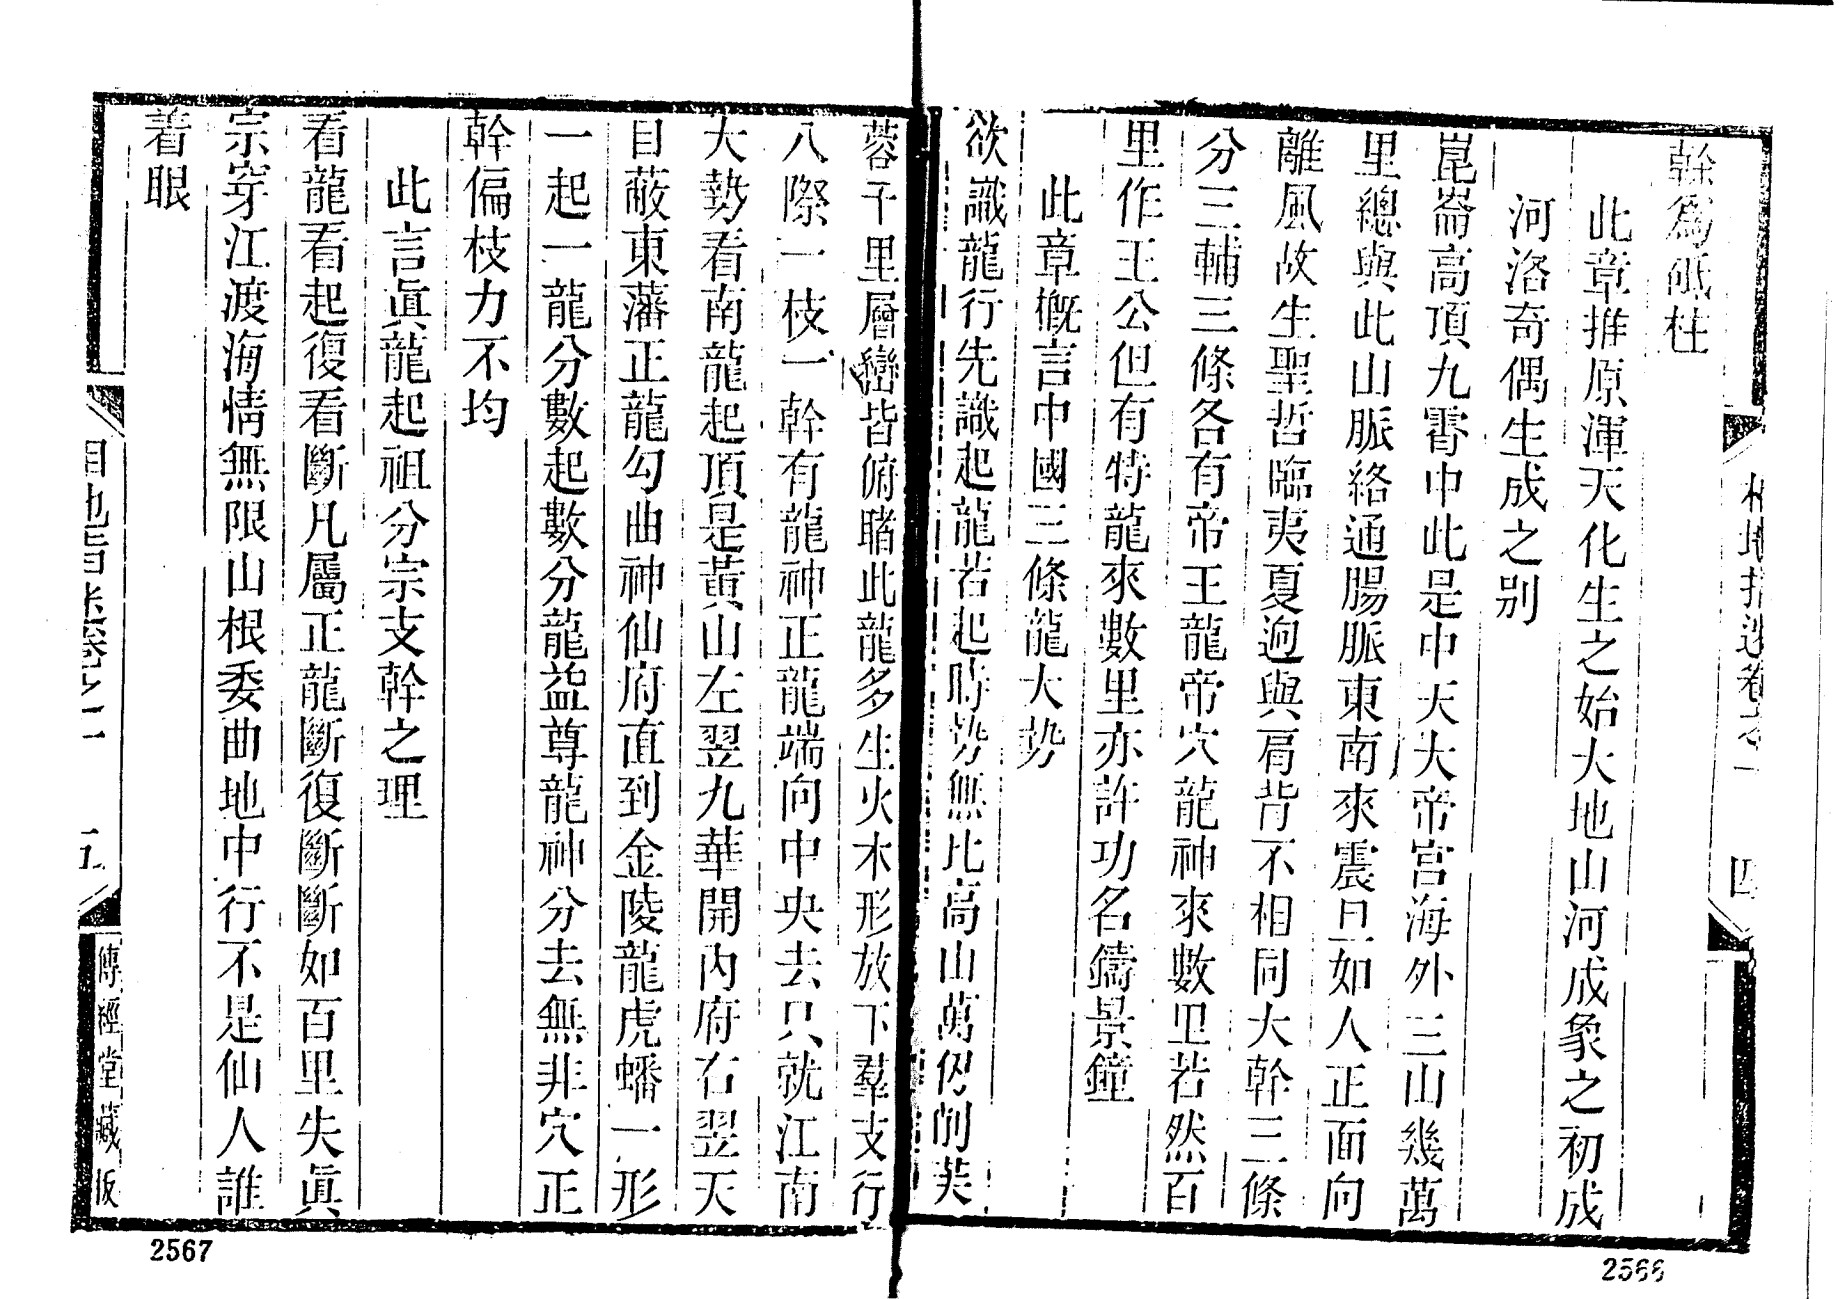 幹爲砥柱
此章推原渾天化生之始大地山河成象之初成
河洛奇偶生成之别
崑崙高頂九霄中此是中天大帝宫海外三山幾萬
里總與此山脈絡通腸脈東南來震旦如人正面向
離風故生聖哲臨夷夏逈與肩背不相同大幹三條
分三輔三條各有帝王龍帝穴龍神來數里若然百
里作王公但有特龍來數里亦許功名鑄景鐘
此章槪言中國三條龍大势
欲識龍行先識起龍若起時势無比高山萬仭削芙
蓉千里層巒皆俯睹此龍多生火木形放下羣支行
八際一枝一幹有龍神正龍端向中央去只就江南
大勢看南龍起頂是黄山左翌九華開內府右翌天
目蔽東藩正龍勾曲神仙府直到金陵龍虎蟠一形
一起一龍分數起數分龍益尊龍神分去無非穴正
幹偏枝力不均
此言眞龍起祖分宗支幹之理
看龍看起復看斷凡屬正龍斷復斷斷如百里失眞
宗穿江渡海情無限山根委曲地中行不是仙人誰
着眼
相地指迷卷之一
四
相地指迷卷之一
五
傳經堂藏板
2566
2567